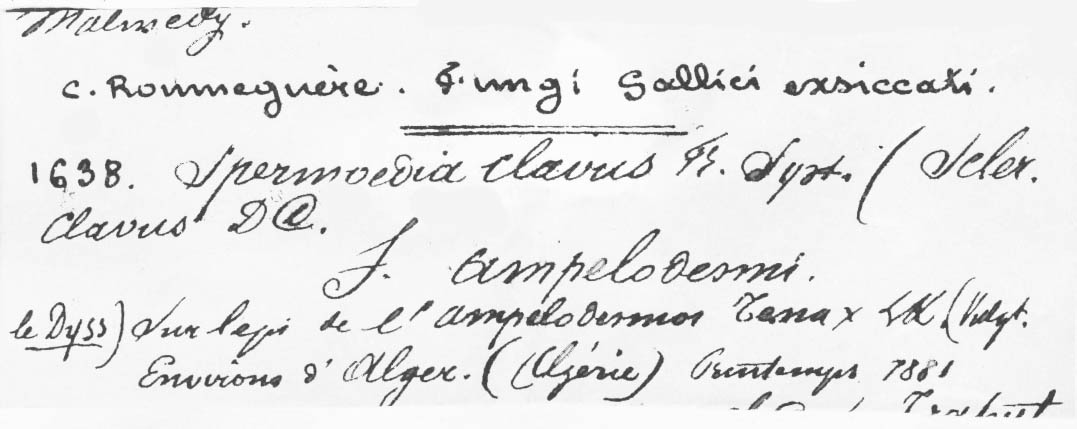 Malmedy.
C. Roumeguère. Fungi Gallici exsiccati.
1638. Spermoedia Clavus Fr. Syst. (Scler.
Clavus DC.
f. Ampelodesmi.
le Dyss) Sur l'epi de l'Ampelodesmos Tenax LK. (Vulgt.
Environs d'Alger. (Algérie) Printemps 1881
Trabut